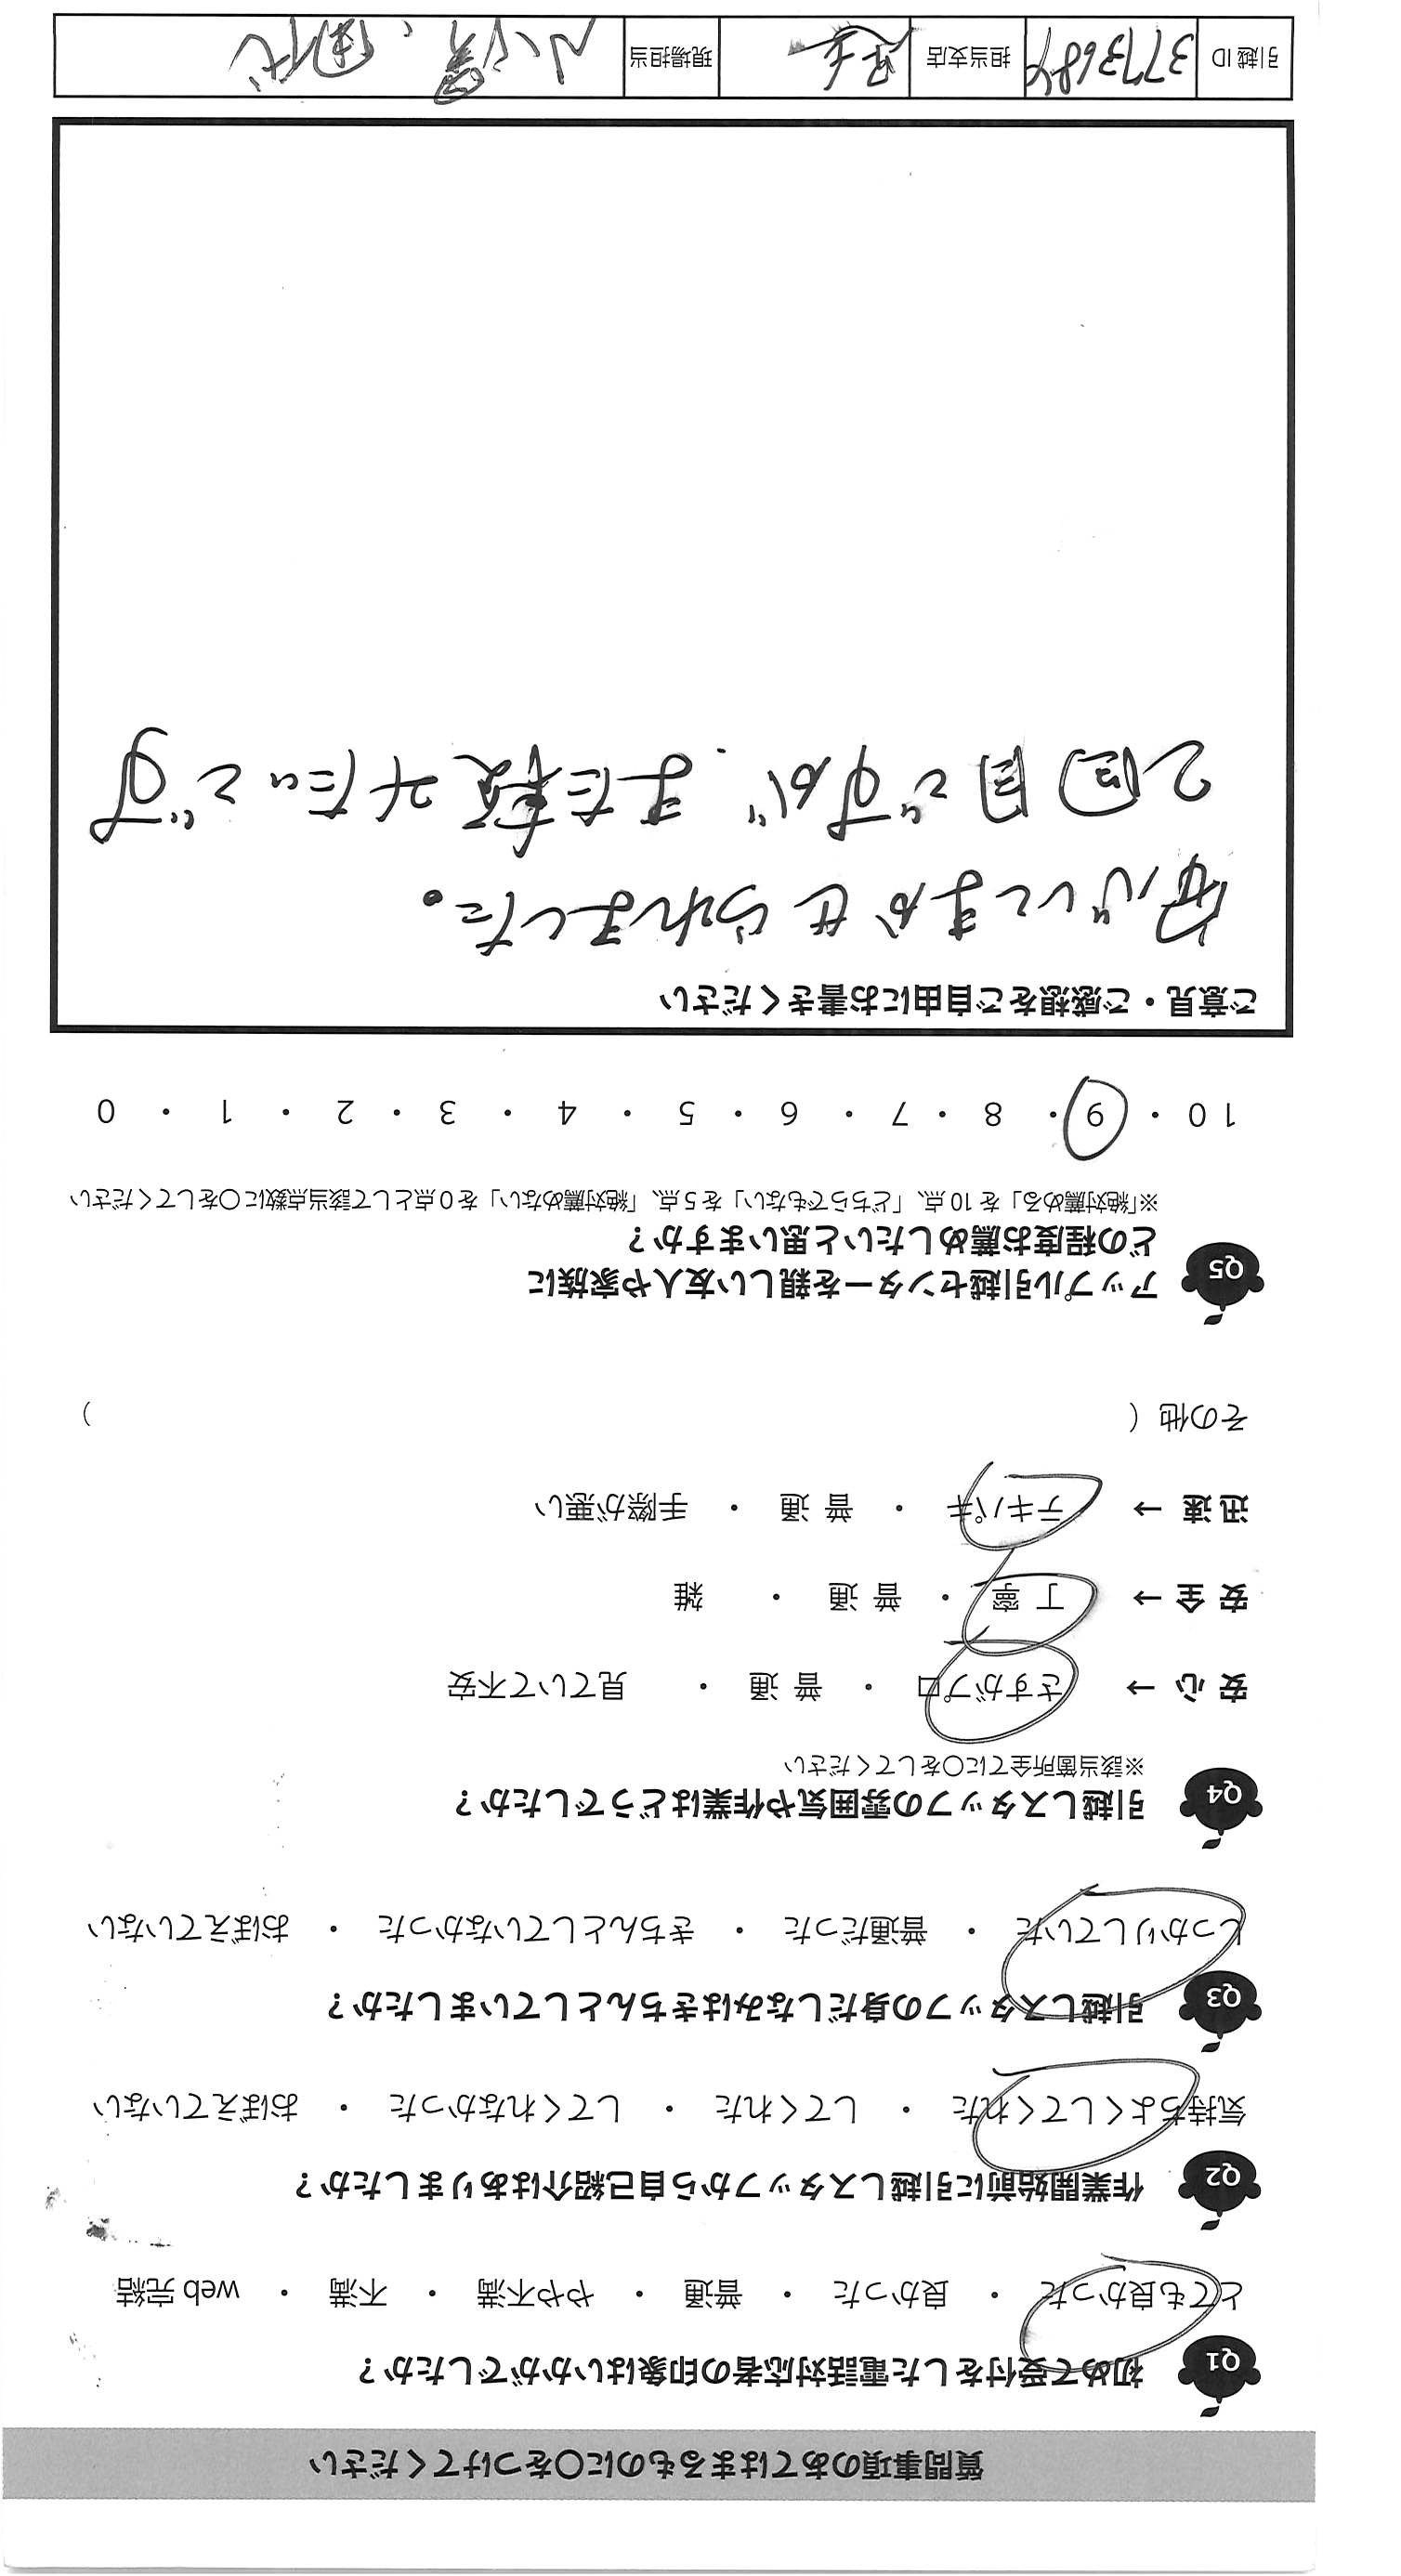 質問事項のあてはまるものに○をつけてください
Q1 初めて受付をした電話対応者の印象はいかがでしたか？
とても良かった ・ 良かった ・ 普通 ・ やや不満 ・ 不満 ・ web 完結
Q2 作業開始前に引越しスタッフから自己紹介はありましたか？
気持ちよくしてくれた ・ してくれた ・ してくれなかった ・ おぼえていない
Q3 引越しスタッフの身だしなみはきちんとしていましたか？
しっかりしていた ・ 普通だった ・ きちんとしていなかった ・ おぼえていない
Q4 引越しスタッフの雰囲気や作業はどうでしたか？
※該当箇所全てに○をしてください
安心 → さすがプロ ・ 普通 ・ 見ていて不安
安全 → 丁寧 ・ 普通 ・ 雑
迅速 → テキパキ ・ 普通 ・ 手際が悪い
その他（ ）
Q5 アップル引越センターを親しい友人や家族に
どの程度お薦めしたいと思いますか？
※「絶対薦める」を 10 点、「どちらでもない」を 5 点、「絶対薦めない」を 0 点として該当点数に○をしてください
10 ・ 9 ・ 8 ・ 7 ・ 6 ・ 5 ・ 4 ・ 3 ・ 2 ・ 1 ・ 0
ご意見・ご感想をご自由にお書きください
安心してまかせられました。
2回目ですが、また頼みたいです
引越 ID 3773684 担当支店 現場担当